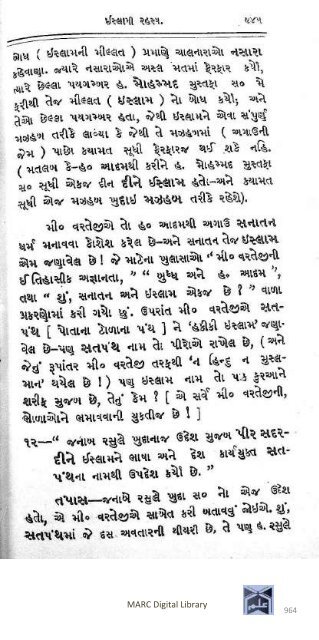 ઈસ્લામી રહસ્ય. ૬૪૫
બોધ ( ઈસ્લામની મીલ્લત ) પ્રમાણે ચાલનારાઓ નસારા
કહેવાણા. જ્યારે નસારાઓએ અસ્લ મતમાં ફેરફાર કર્યો,
ત્યારે છેલ્લા પયગમ્બર હ. મોહમ્મદ મુસ્તફા સ૦ મે
ફરીથી તેજ મીલ્લત ( ઈસ્લામ ) નો બોધ કર્યો; અને
તેઓ છેલ્લા પયગમ્બર હતા, જેથી ઈસ્લામને એવા સંપુર્ણ
મઝહબ તરીકે લાવ્યા કે જેથી તે મઝહબમાં ( અગાઉની
જેમ ) પાછો કયામત સૂધી ફેરફારજ થઈ શકે નહિ.
( મતલબ કે–હ૦ આદમથી કરીને હ. મોહમ્મદ મુસ્તફા
સ૦ સૂધી એકજ દીન દીને ઈસ્લામ હતો–અને કયામત
સૂધી એજ મઝહબ ખુદાઈ મઝહબ તરીકે રહેશે).
મી૦ વરતેજીએ તો હ૦ આદમથી અગાઉ સનાતન
ધર્મ મનાવવા કોશેશ કરેલ છે–અને સનાતન તેજ ઈસ્લામ
એમ જણાવેલ છે! જે માટેના ખુલાસાઓ “ મી૦ વરતેજીની
ઈતિહાસીક અજ્ઞાનતા, ” “ બુધ્ધ અને હ૦ આદમ ”,
તથા “ શું, સનાતન અને ઈસ્લામ એકજ છે ? ” વાળા
પ્રકરણોમાં કરી ગયો છું. ઉપરાંત મી૦ વરતેજીએ સત-
પંથ [ પોતાના ટોળાના પંથ ] ને ‘હકીકી ઈસ્લામ’ જણા-
વેલ છે–પણ સતપંથ નામ તો પીરોએ રાખેલ છે, (અને
જેનું રૂપાંતર મી૦ વરતેજી તરફથી ‘ન હિન્દુ ન મુસ્લ-
માન’ થયેલ છે !) પણ ઈસ્લામ નામ તો પાક કુરઆને
શરીફ મુજબ છે, તેનું કેમ ? [ એ સર્વે મી૦ વરતેજીની,
ભોળાઓને ભમાવવાની યુકતીજ છે ! ]
૧૨—“ જનાબ રસૂલે ખુદાનાજ ઉદેશ મુજબ પીર સદર-
દીને ઈસ્લામને ભાષા અને દેશ કાર્યયુક્ત સત-
પંથના નામથી ઉપદેશ કર્યો છે. ”
તપાસ—જનાબે રસૂલે ખુદા સ૦ નો એજ ઉદેશ
હતો, એ મી૦ વરતેજીએ સાબેત કરી બતાવવું જોઈએ. શું,
સતપંથમાં જે દસ અવતારની થીયરી છે, તે પણ હ. રસૂલે
MARC Digital Library
964